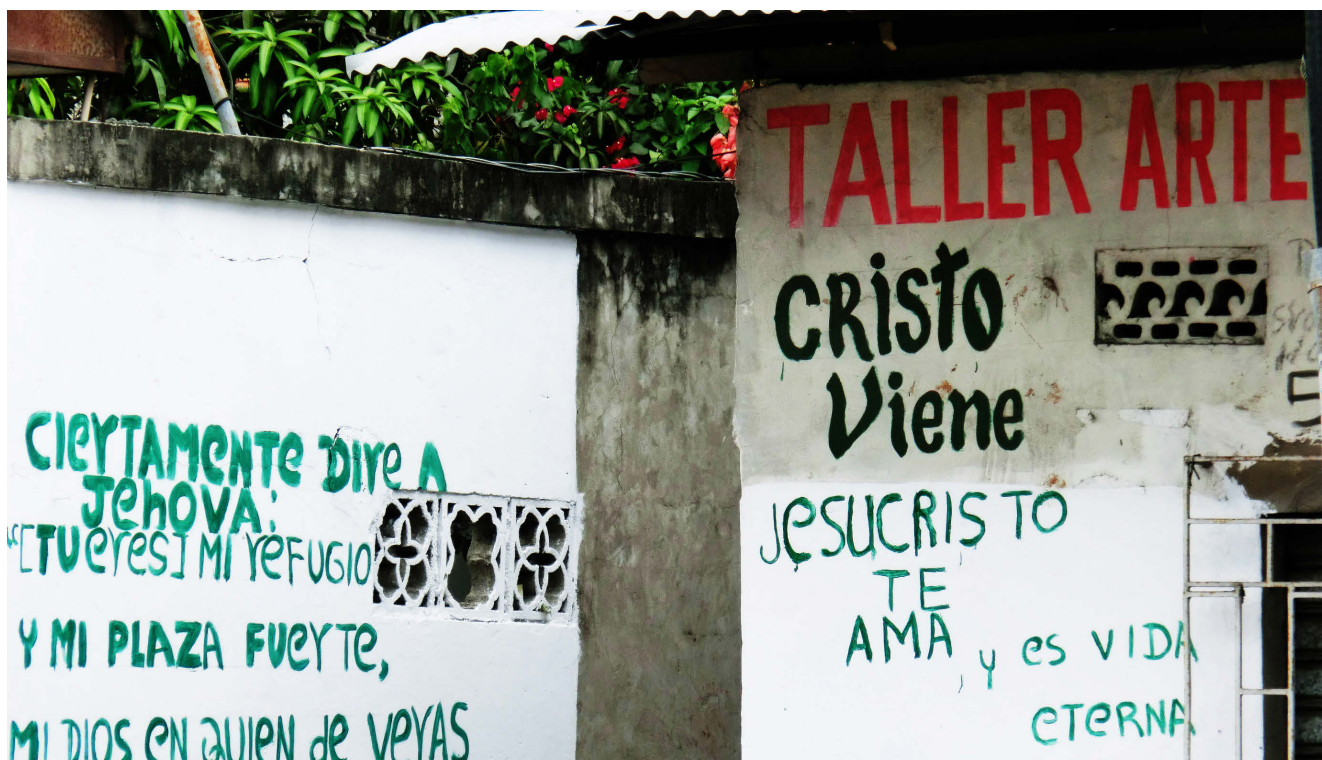 CIERTAMENTE DIRE A
JEHOVA:
“[TU ERES] MI REFUGIO
Y MI PLAZA FUERTE,
MI DIOS EN QUIEN de VERAS
TALLER ARTE
CRISTO
Viene
JESUCRISTO
TE
AMA y es VIDA
eTeRNA
5